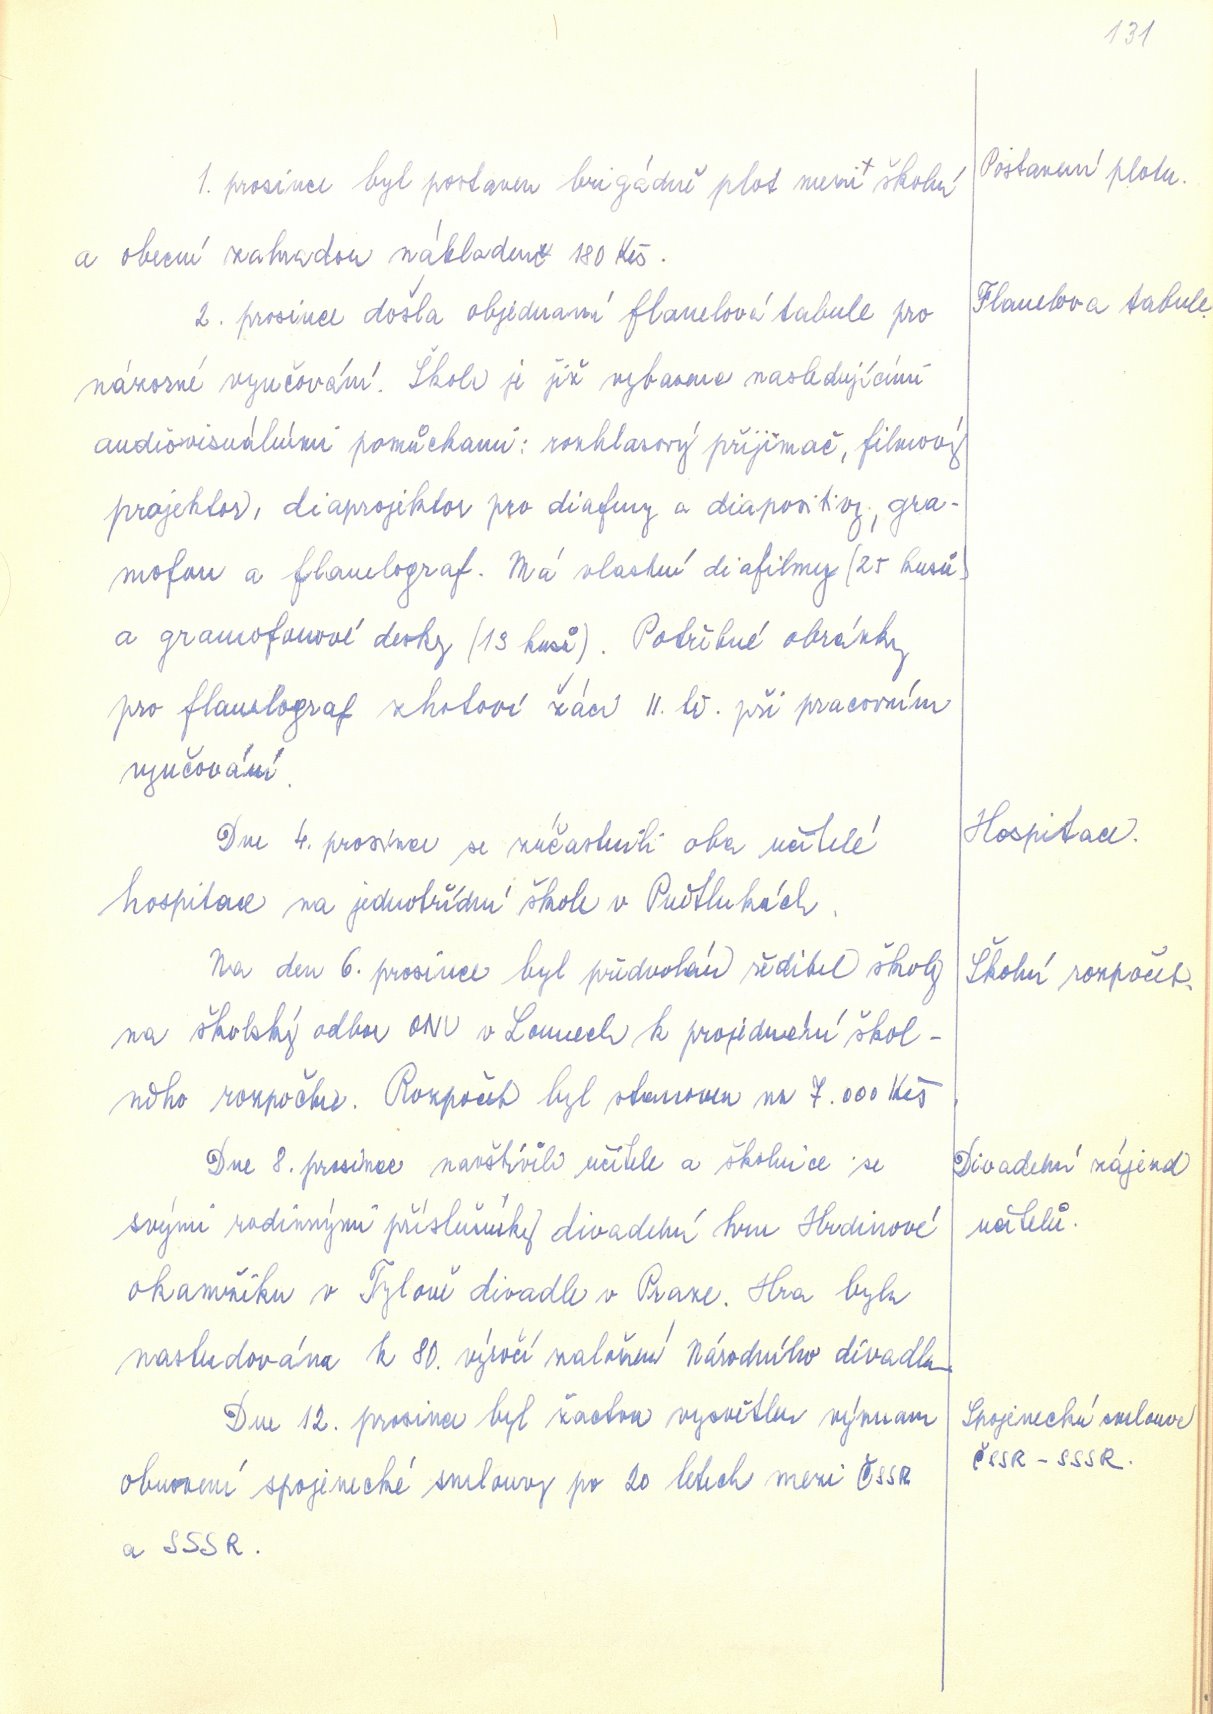 131
1. prosince byl postaven brigádně plot mezi školní
a obecní zahradou nákladem 180 Kčs.
Postavení plotu.
2. prosince došla objednaná flanelová tabule pro
názorné vyučování. Škola je již vybavena nasledujícími
audiovisuálními pomůckami: rozhlasový přijímač, filmový
projektor, diaprojektor pro diafilmy a diapositivy, gra-
mofon a flanelograf. Má vlastní diafilmy (25 kusů)
a gramofonové desky (13 kusů). Potřebné obrázky
pro flanelograf zhotoví žáci II. tř. při pracovním
vyučování.
Flanelova tabule.
Dne 4. prosince se zúčastnili oba učitelé
hospitace na jednotřídní škole v Pnětlukách.
Hospitace.
Na den 6. prosince byl předvolán ředitel školy
na školský odbor ONV v Lounech k projednání škol-
ního rozpočtu. Rozpočet byl stanoven na 7.000 Kčs.
Školní rozpočet.
Dne 8. prosince navštívili učitele a školnice se
svými rodinnými příslušníky divadelní hru Hrdinové
okamžiku v Tylově divadle v Praze. Hra byla
nastudována k 80. výročí založení Národního divadla.
Divadelní zájezd
učitelů.
Dne 12. prosince byl žactvu vysvětlen význam
obnovení spojenecké smlouvy po 20 letech mezi ČSSR
a SSSR.
Spojenecká smlouva
ČSSR - SSSR.